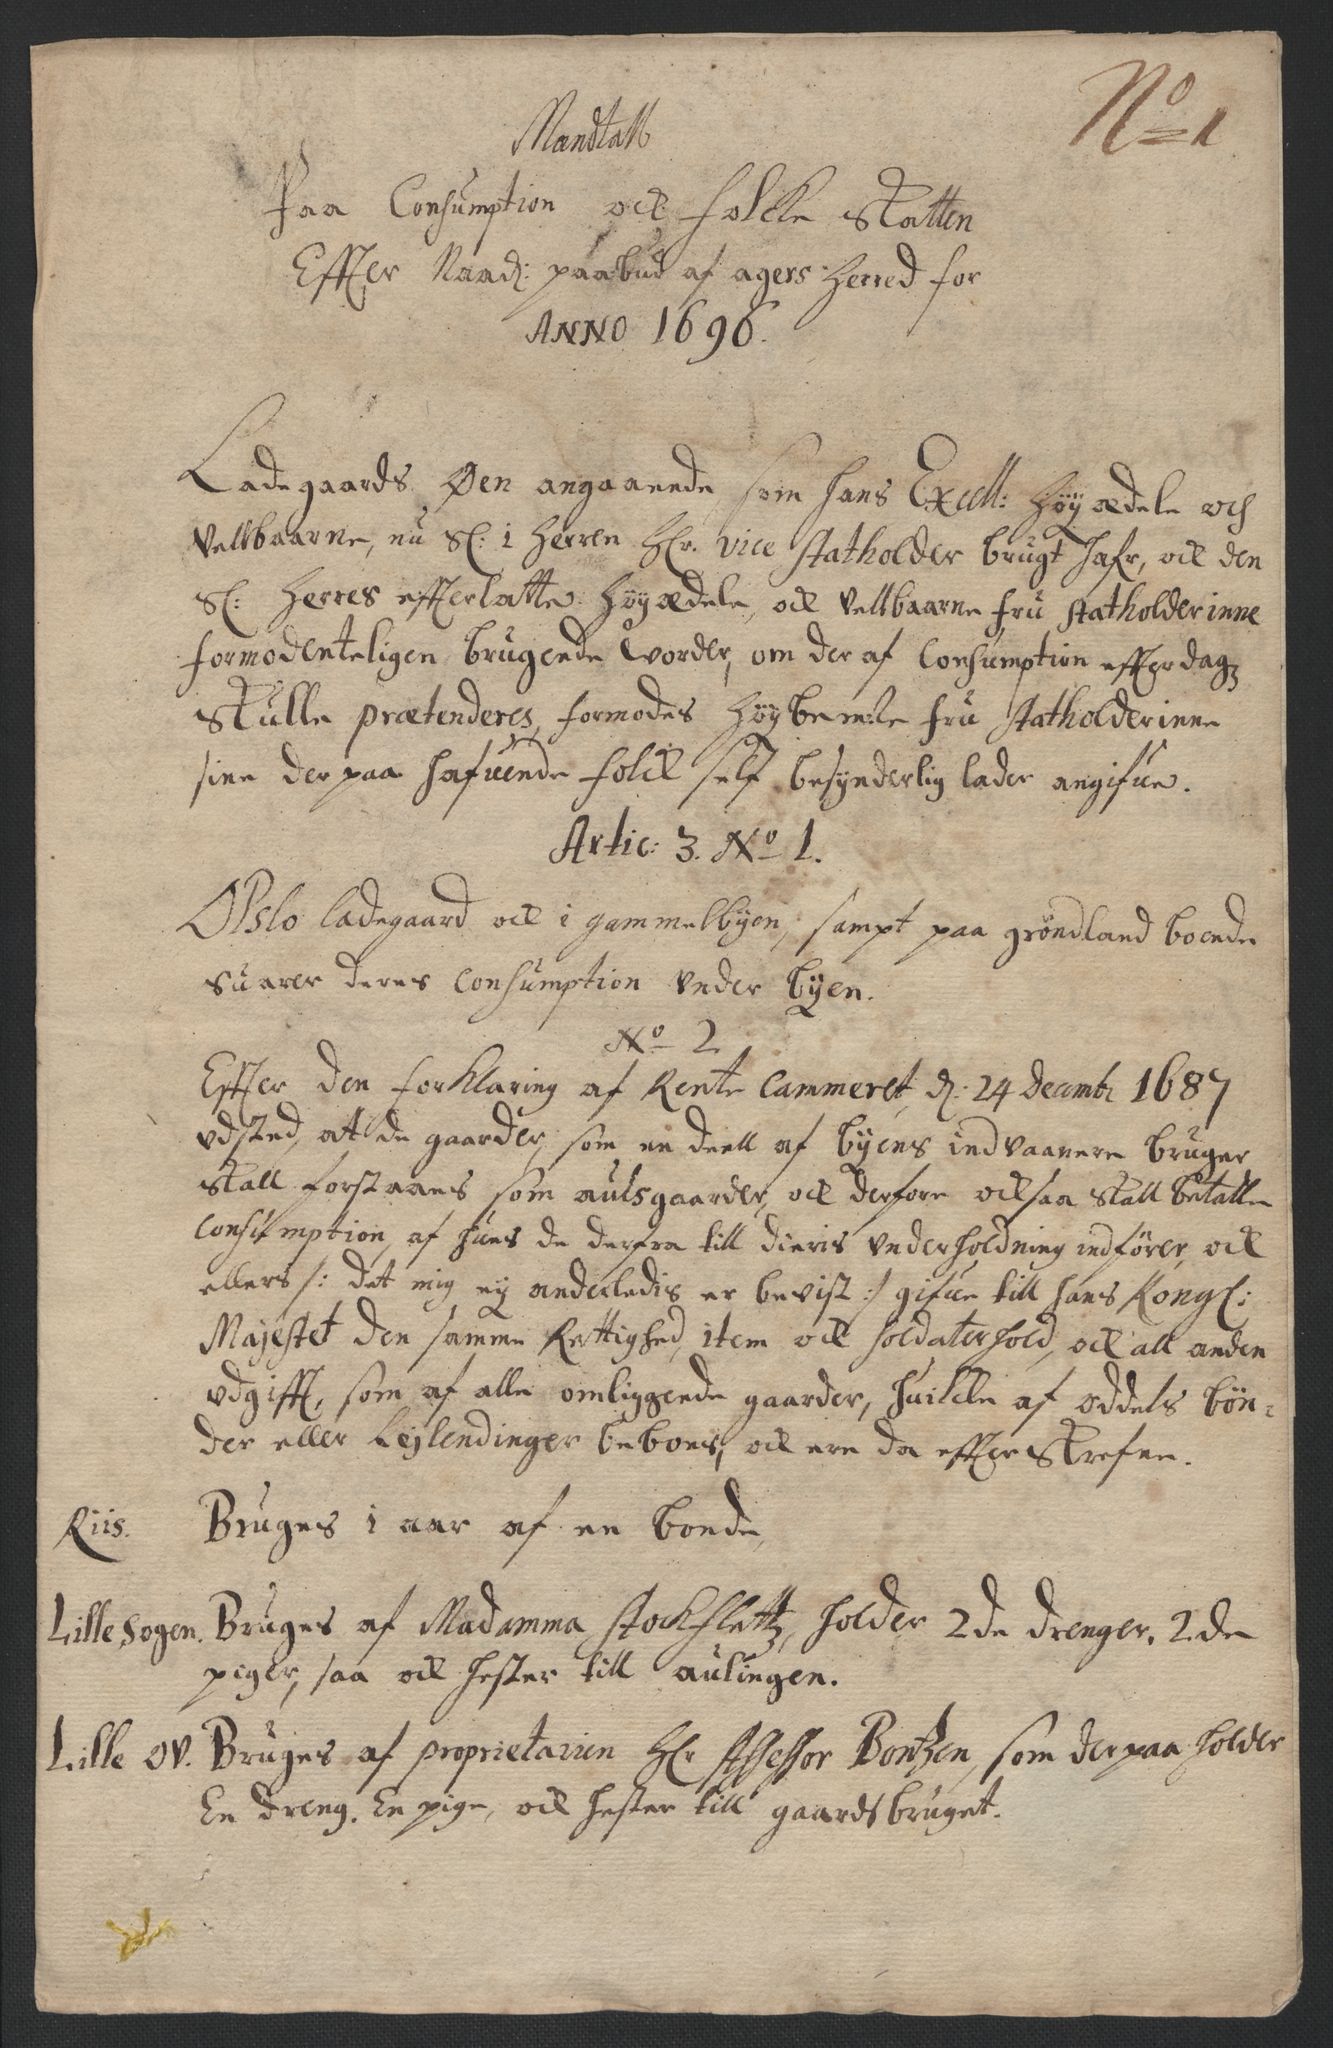 No 1
Mandtall
Paa Consumption ock folcke skatten
Effter Naad: paabud af agers herred for
ANNO 1696.
Ladegaards Øen angaaende som hans Excell: høyædele och
Velbaarne, nu Sl: i herren Hr. vice statholder brugt hafr, ock den
Sl: herres effterlatte høyædele, ock velbaarne fru statholderinne
formodenteligen brugende vorder, om der af Consumption effter dags
skulle prætenderes, formodes høybemte fru statholderinne
sine der paa hafuende folck self besynderlig lader angifue.
Artic: 3. No 1.
Opslo ladegaard ock i gammelbyen, sampt paa grøndland boende
suarer deres Consumption under byen.
No 2
Effter den forklaring af Rente Cammeret, d: 24 decembr 1687
udsted, at de gaarder, som en deell af byens indvaanere bruger
skall forstaaes som aulsgaarder, ock derfore ock saa skall betalle
Consumption, af hues de derfra till dieris underholdning indfører, ock
ellers /: det mig ey anderledis er bevist :/ gifue till hans Kongl:
Majestet den samme Rettighed, item ock soldaterhold, ock all anden
udgifft, som af alle omliggende gaarder, huilcke af oddels bøn=
der eller leylendinger beboes, ock ere da effterskrefne.
Riis. Bruges i aar af en bonde,
Lille Sogen. Bruges af Madamma Stockfletz, holder 2de drenger, 2de
piger, saa ock hester till aulingen.
Lille ov. Bruges af proprietarien Hr Assessor Bontzen, som der paa holder
En dreng. En pige, ock hester till gaardsbruget.